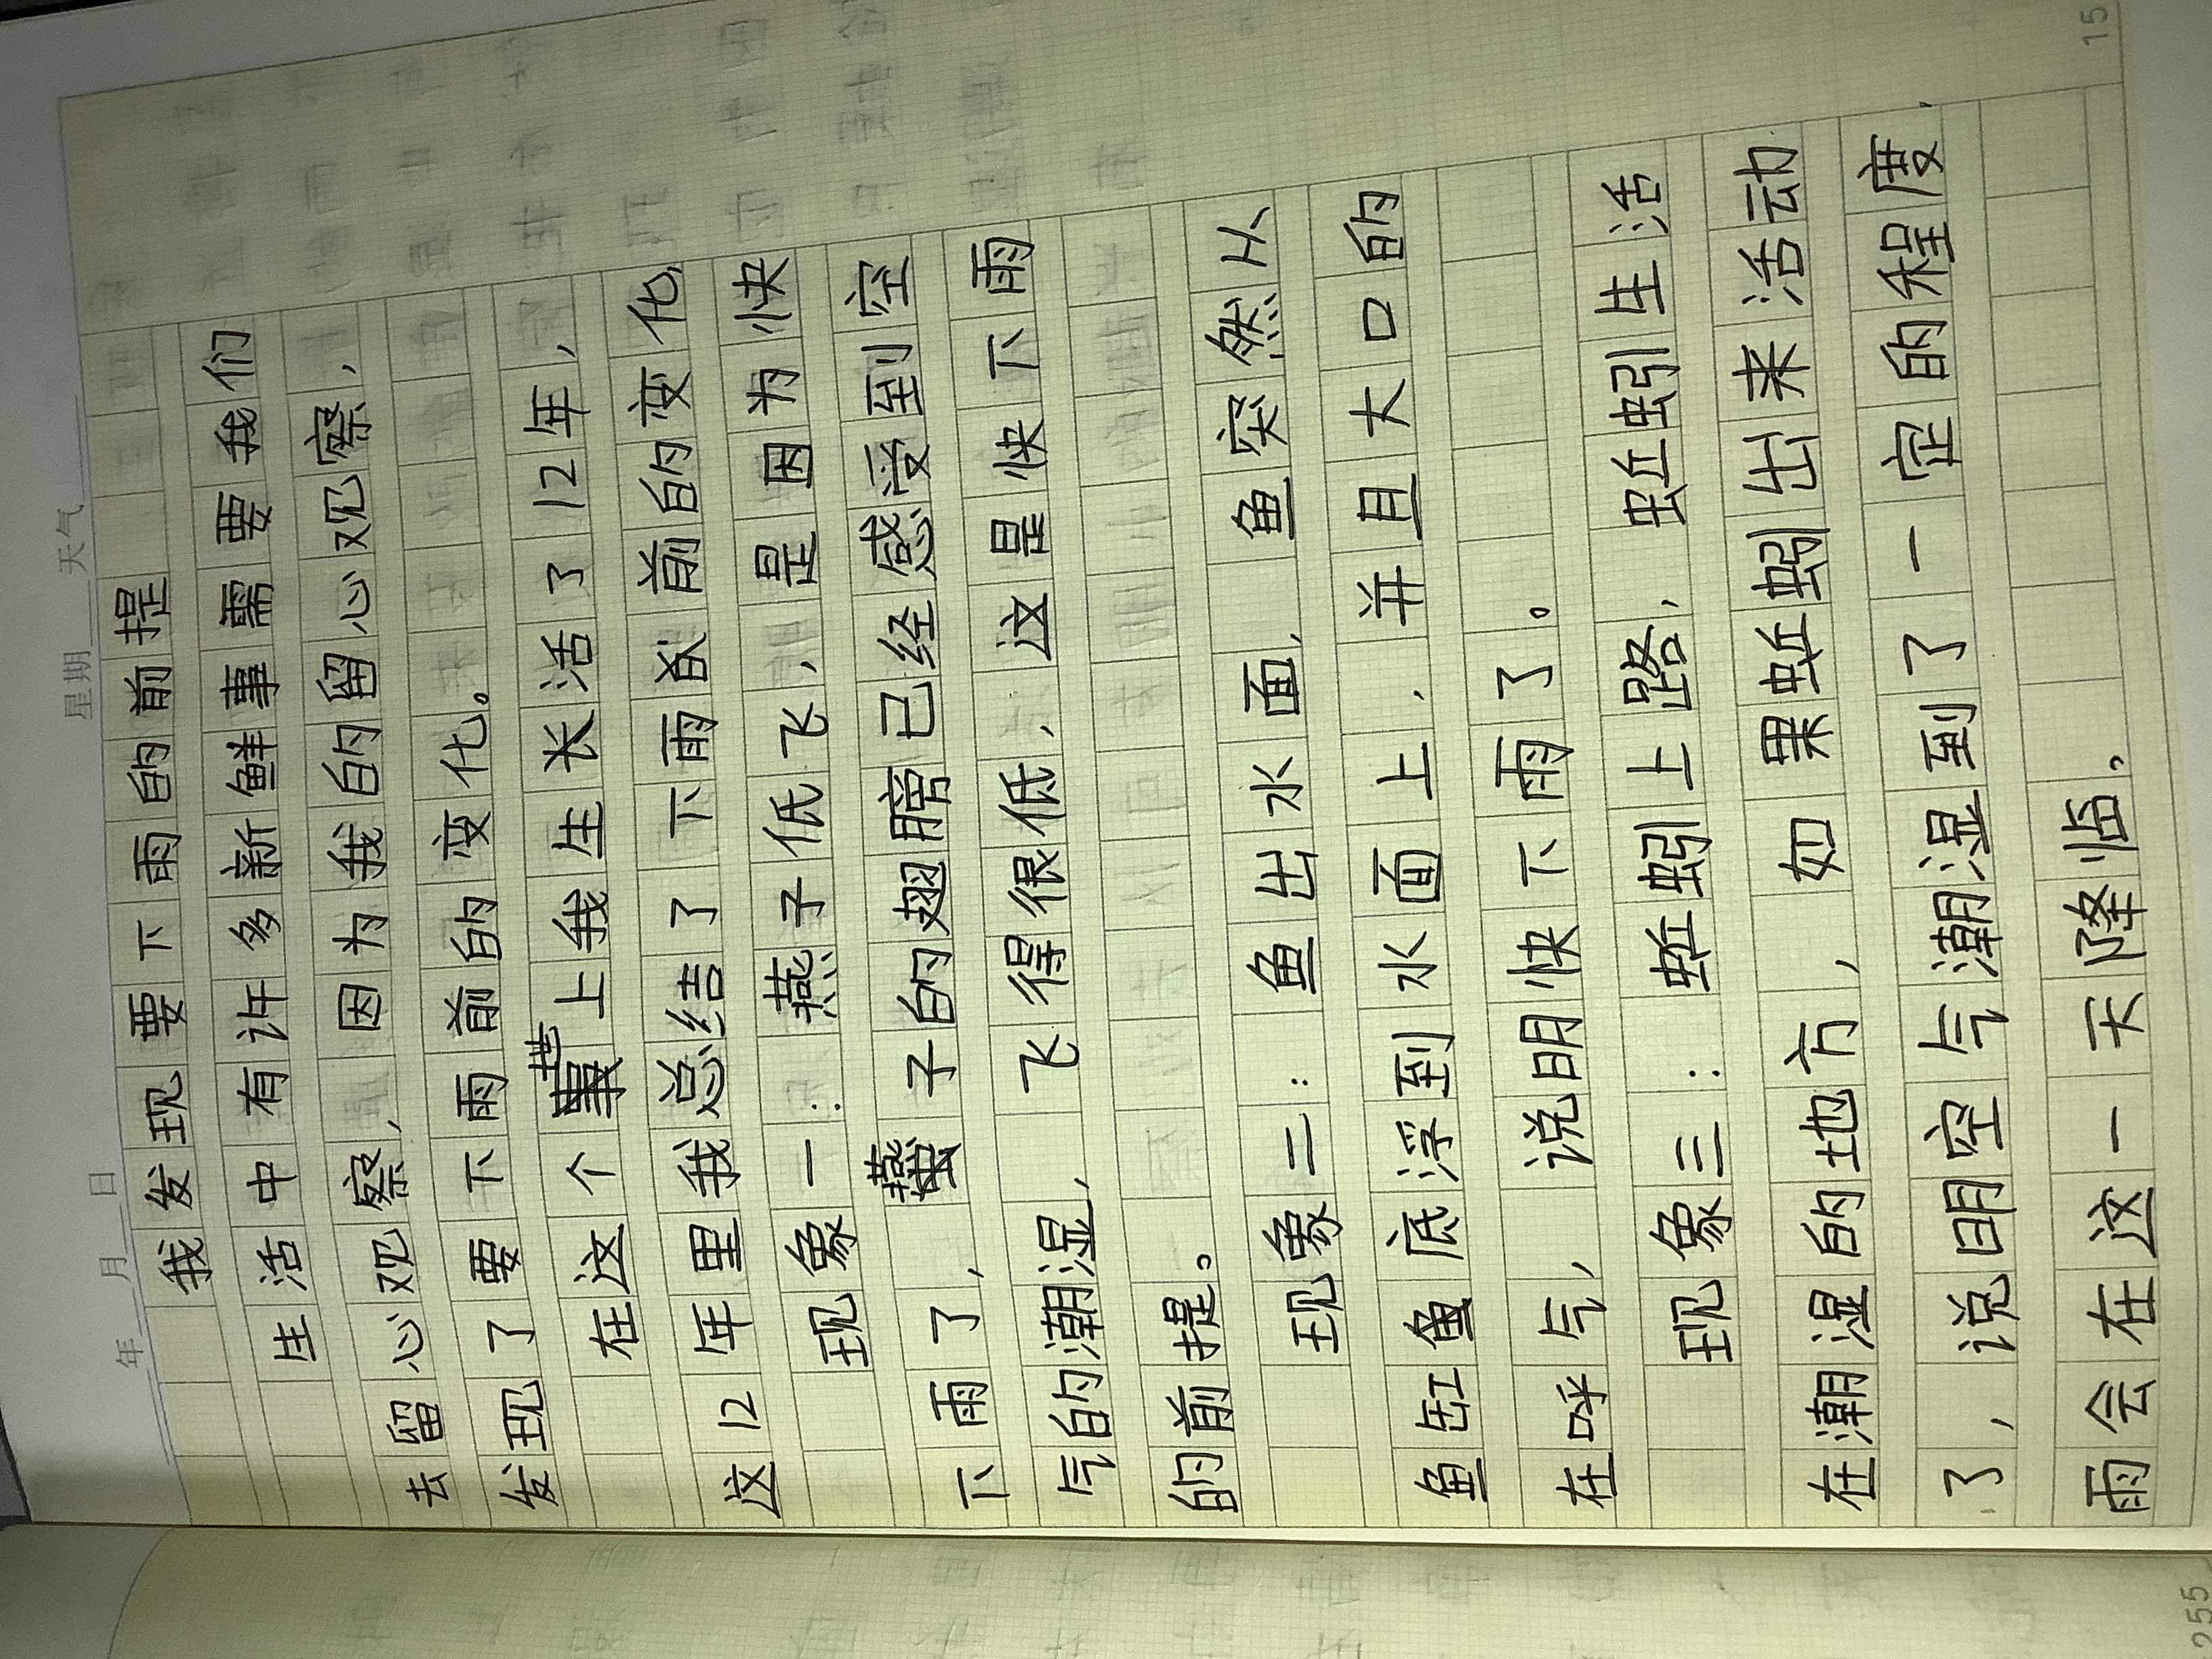 年 月 日 星期 天气
我发现要下雨的前提
生活中有许多新鲜事需要我们
去留心观察，因为我的留心观察，
发现了要下雨前的变化。
在这个世上我生长活了12年，
这12年里我总结了下雨前的变化，
现象一：燕子低飞，是因为快
下雨了，燕子的翅膀已经感受到空
气的潮湿，飞得很低，这是快下雨
的前提。
现象二：鱼出水面，鱼突然从
鱼缸鱼底浮到水面上，并且大口的
在呼气，说明快下雨了。
现象三：蚯蚓上路，蚯蚓生活
在潮湿的地方，如果蚯蚓出来活动
了，说明空气潮湿到了一定的程度，
雨会在这一天降临。
15
255